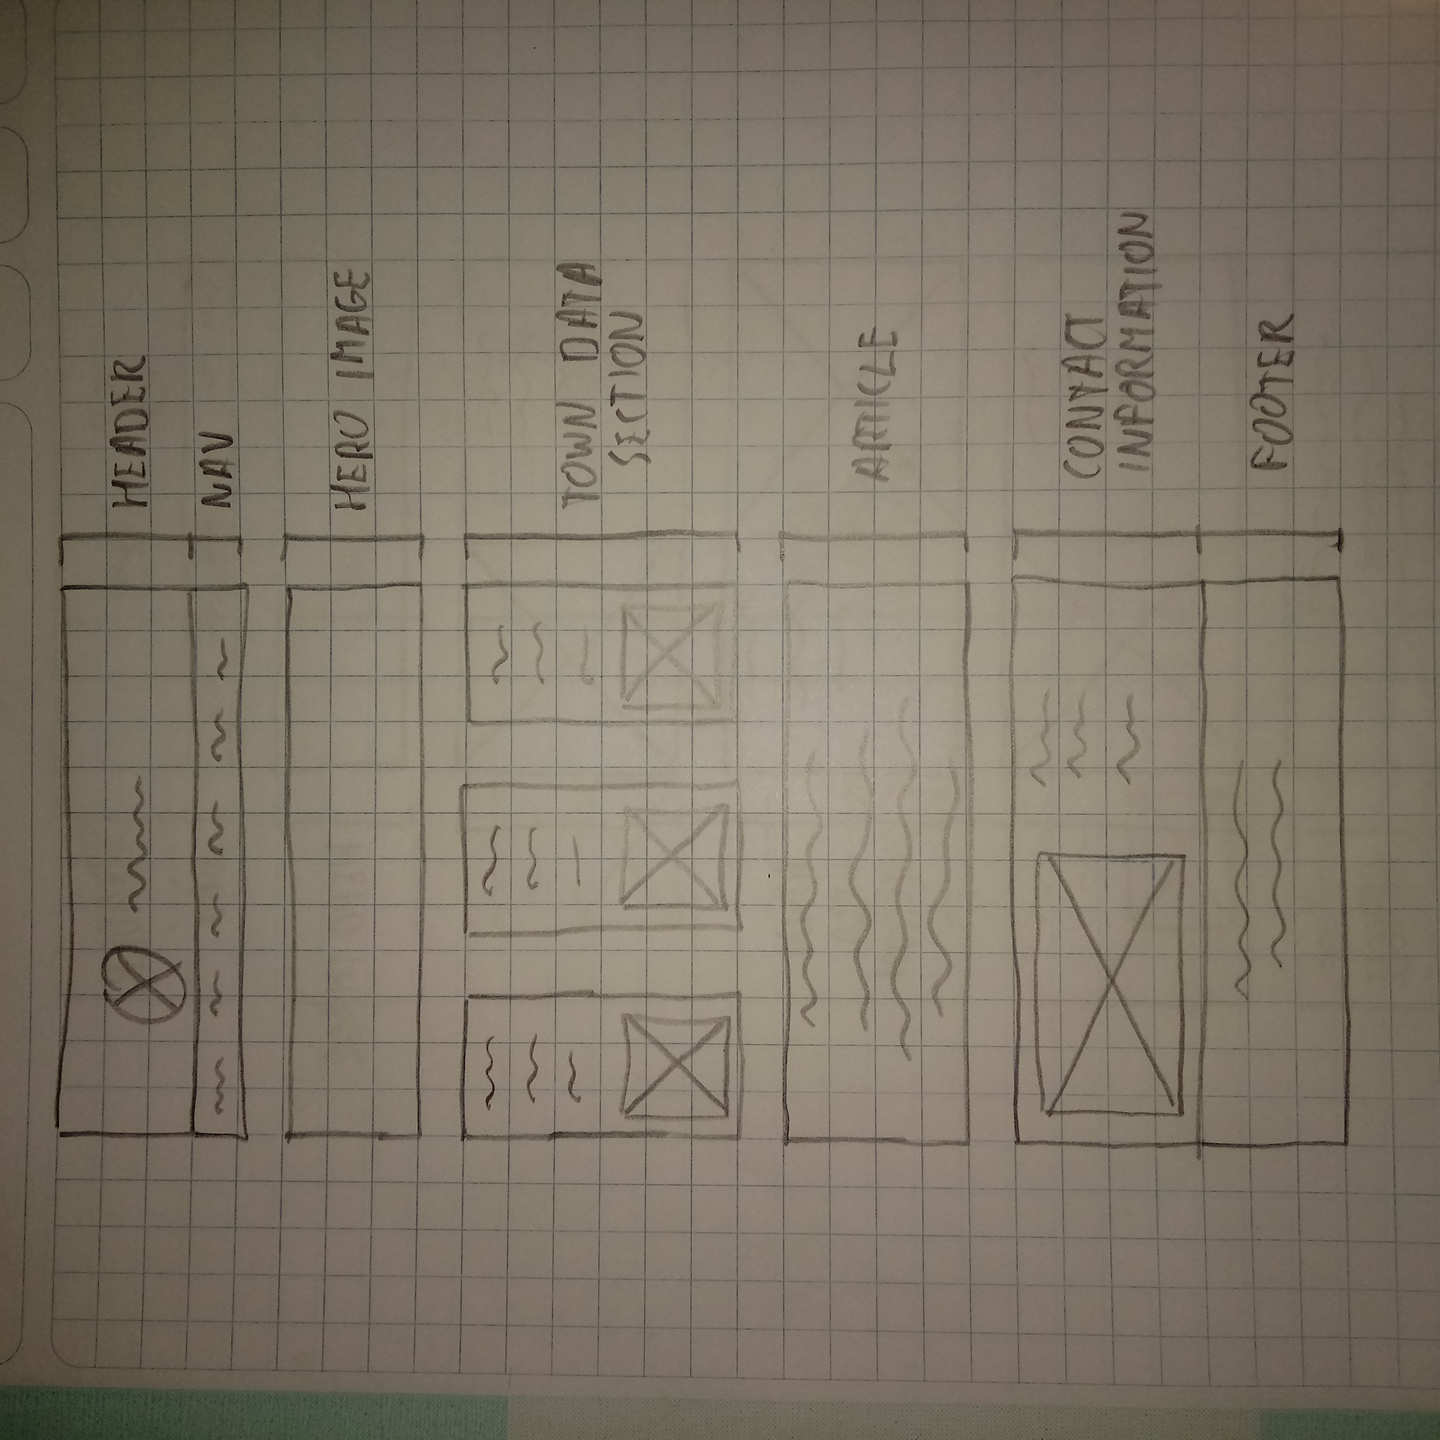 HEADER
NAV
HERO IMAGE
TOWN DATA
SECTION
ARTICLE
CONTACT
INFORMATION
FOOTER